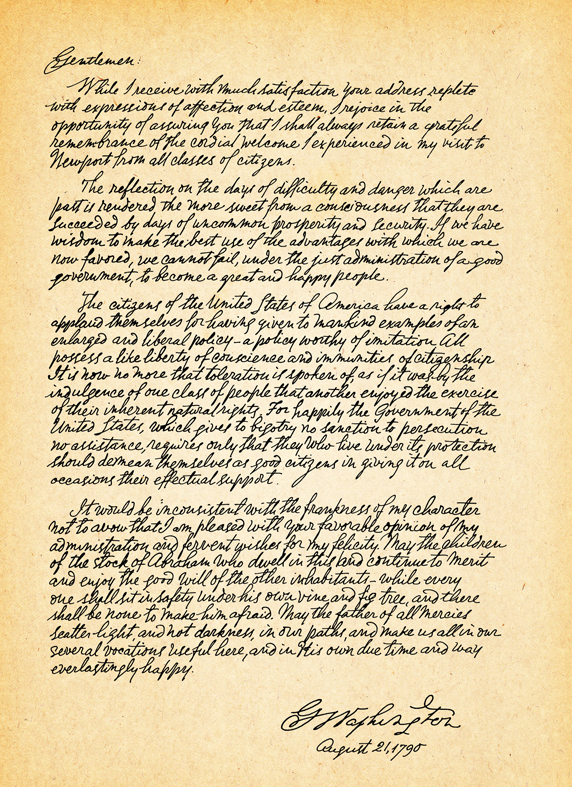 Gentlemen:
While I receive with much satisfaction, your address replete
with expressions of affection and esteem, I rejoice in the
opportunity of assuring you that I shall always retain a grateful
remembrance of the cordial welcome I experienced in my visit to
Newport from all classes of citizens.
The reflection on the days of difficulty and danger which are
past is rendered the more sweet from a consciousness that they are
succeeded by days of uncommon prosperity and security. If we have
wisdom to make the best use of the advantages with which we are
now favored, we cannot fail, under the just administration of a good
government, to become a great and happy people.
The citizens of the United States of America have a right to
applaud themselves for having given to mankind examples of an
enlarged and liberal policy—a policy worthy of imitation. All
possess a like liberty of conscience and immunities of citizenship
It is now no more that toleration is spoken of, as if it was by the
indulgence of one class of people that another enjoyed the exercise
of their inherent natural rights. For happily the Government of the
United States, which gives to bigotry no sanction to persecution
no assistance, requires only that they who live under its protection
should demean themselves as good citizens in giving it on all
occasions their effectual support.
It would be inconsistent with the frankness of my character
not to avow that I am pleased with your favorable opinion of my
administration and fervent wishes for my felicity. May the children
of the stock of Abraham who dwell in this land continue to merit
and enjoy the good will of the other inhabitants—while every
one shall sit in safety under his own vine and fig tree, and there
shall be none to make him afraid. May the father of all mercies
scatter light, and not darkness in our paths, and make us all in our
several vocations useful here, and in His own due time and way
everlastingly happy.
G Washington
August 21, 1790